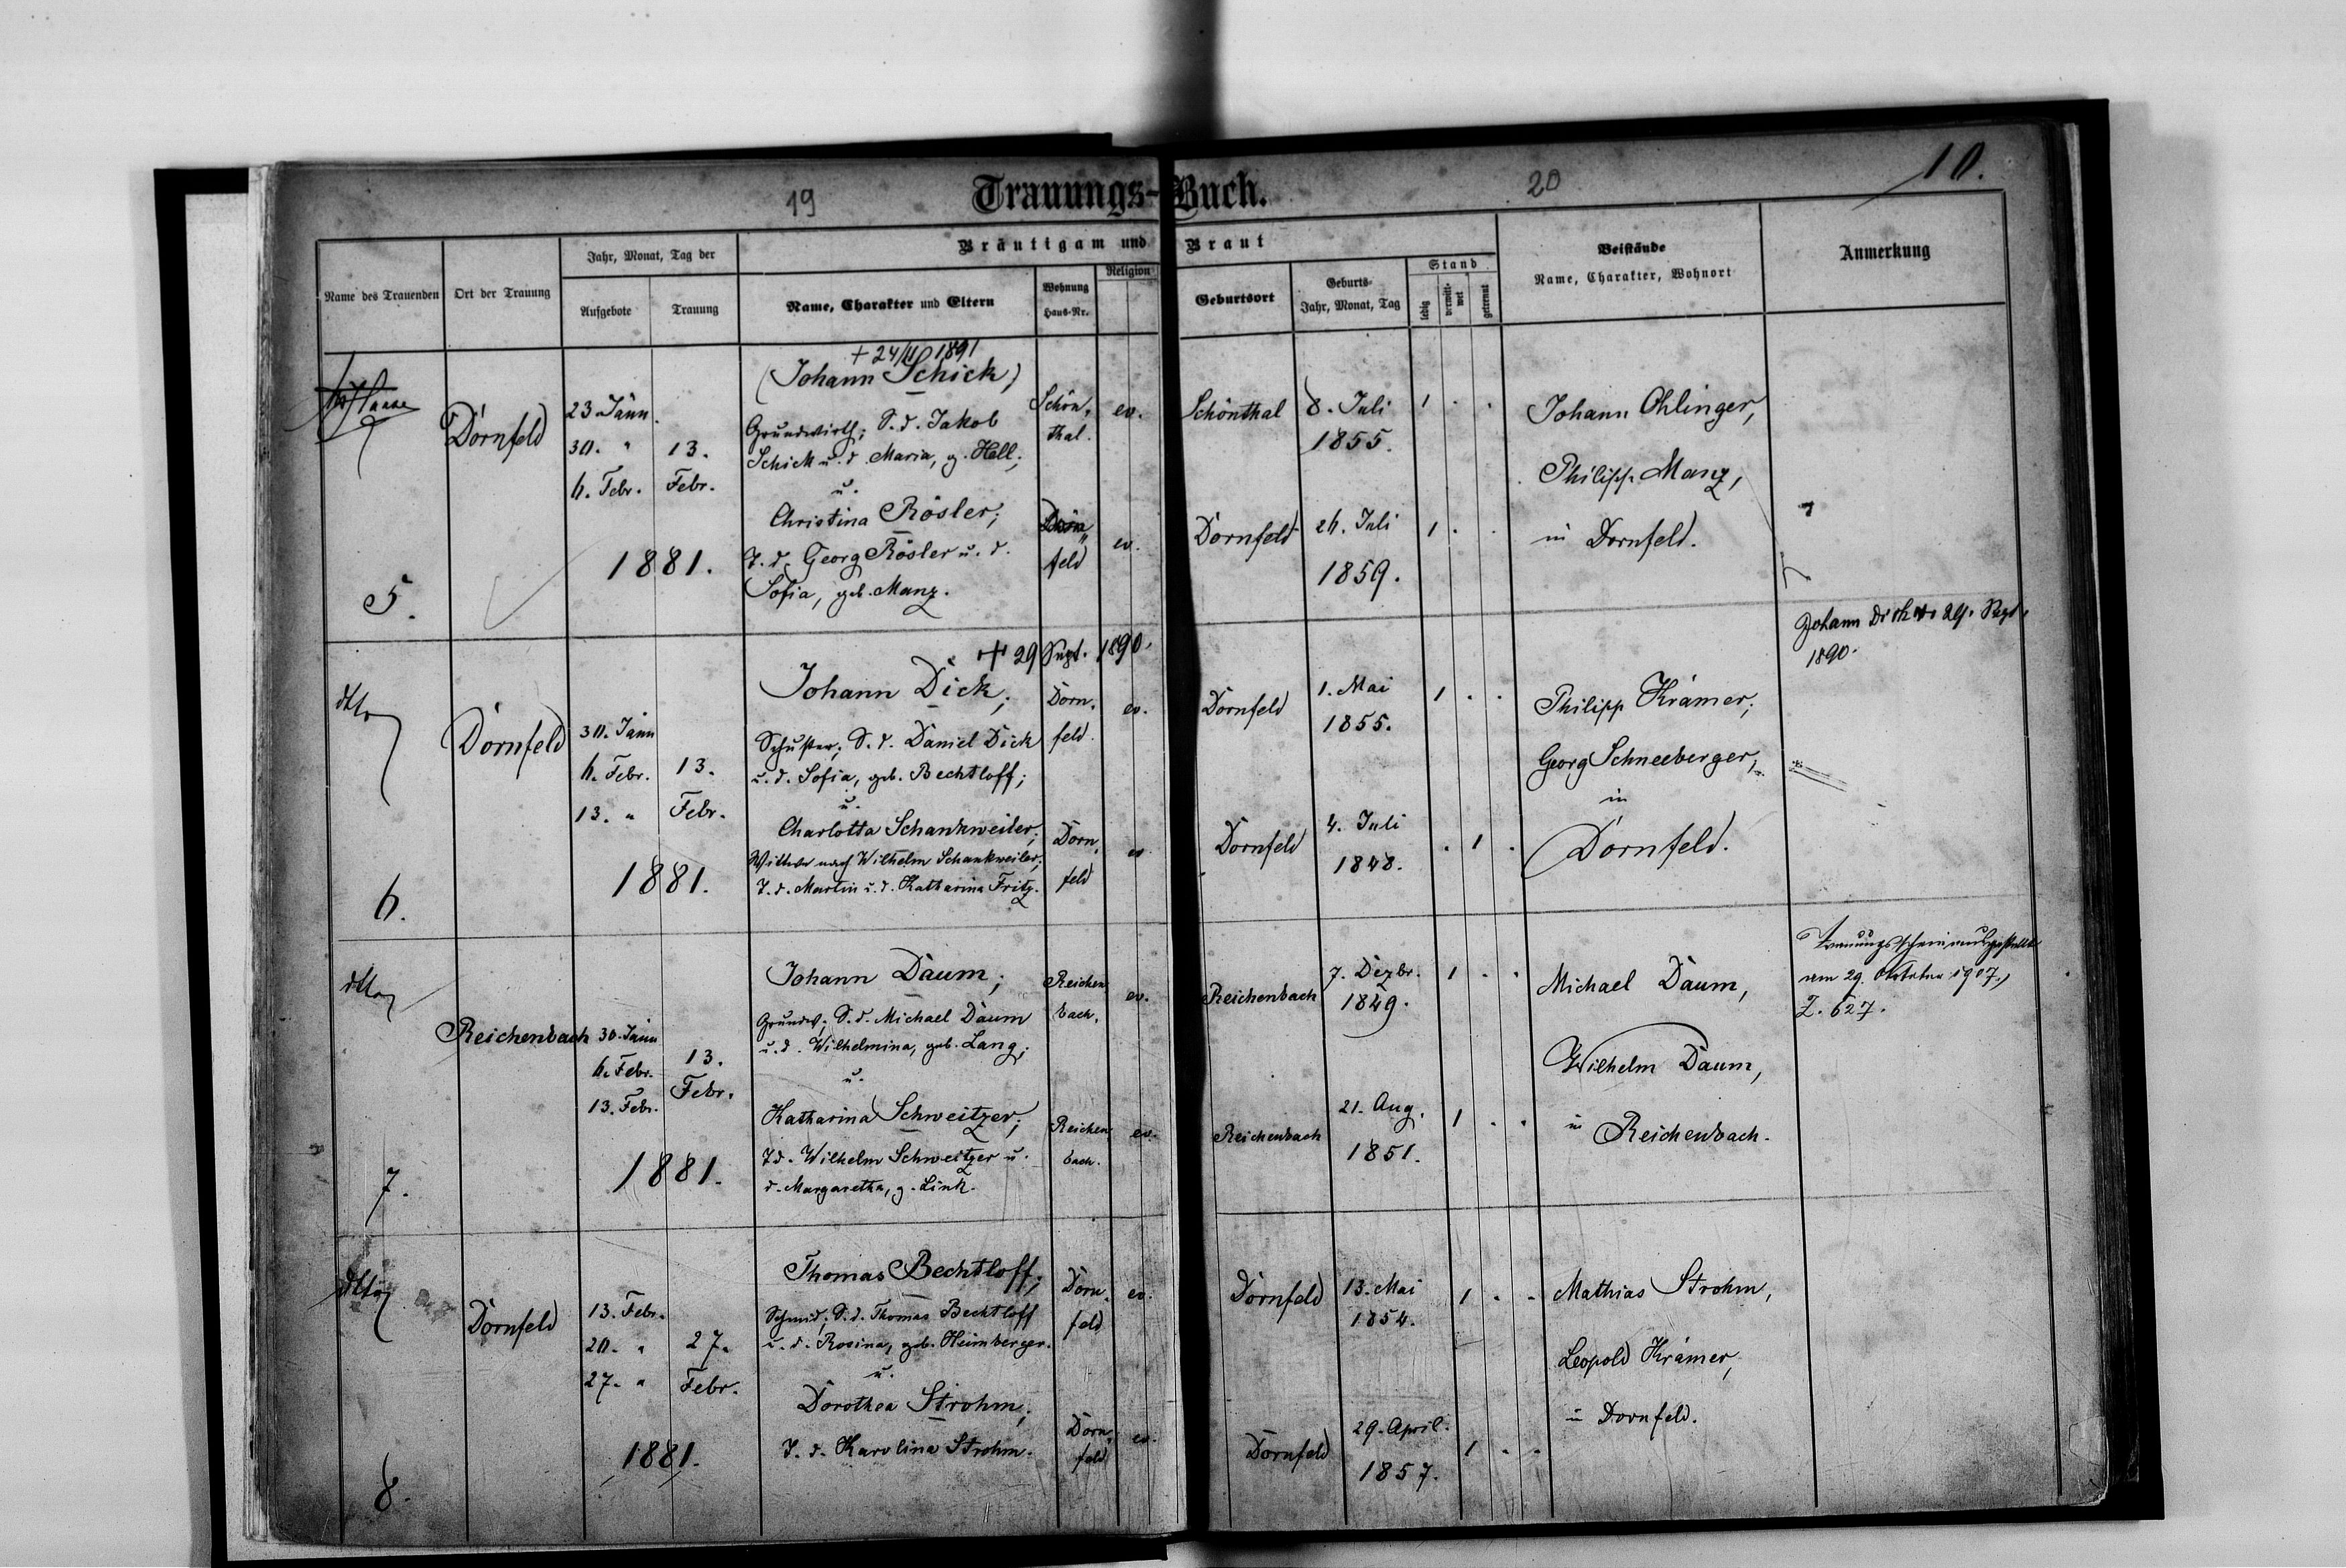 19
Trauungs-Buch.
20
10.
Name des Trauenden
Ort der Trauung
Jahr, Monat, Tag der
Aufgebote
Trauung
Bräutigam und Braut
Name, Charakter und Eltern
Wohnung
Haus-Nr.
Religion
Geburtsort
Geburts-
Jahr, Monat, Tag
Stand
ledig
verwit-
wet
getrennt
Beistände
Name, Charakter, Wohnort
Anmerkung
5.
Dornfeld
23 Jänn.
30. "
6. Febr.
13.
Febr.
1881.
+ 24/11 1891
(Johann Schick)
Grundwirth; S. d. Jakob
Schick u. d. Maria, g. Hell;
u.
Christina Rösler;
T. d. Georg Rösler u. d.
Sofia, geb. Manz.
Schön,
thal.
feld
ev.
ev.
Schönthal
8. Juli
1855.
1 . .
Dornfeld
26. Juli
1859.
1 . .
Johann Ohlinger,
Philipp Manz,
in Dornfeld.
6.
dtto
Dornfeld
30. Jänn
6. Febr.
13. "
13.
Febr.
1881.
+ 29 Sept. 1890.
Johann Dick;
Schuster; S. d. Daniel Dick
u. d. Sofia, geb. Bechtloff;
u.
Charlotta Schankweiler;
Wittwe nach Wilhelm Schankweiler;
T. d. Martin u. d. Katharina Fritz.
Dorn,
feld.
Dorn,
feld
ev.
ev
Dornfeld
1. Mai
1855.
1 . .
Dornfeld
4. Juli
1848.
. 1 .
Philipp Krämer;
Georg Schneeberger;
in
Dornfeld.
Johann Dick + 29. Sept.
1890.
7.
dtto
Reichenbach
30. Jänn
6. Febr.
13. Febr.
13.
Febr.
1881.
Johann Daum;
Grundw; S. d. Michael Daum
u. d. Wilhelmina, geb. Lang;
u.
Katharina Schweitzer;
T. d. Wilhelm Schweitzer u.
d. Margaretha, g. Link.
Reichen
bach.
Reichen
bach.
ev.
ev.
Reichenbach
7. Dezbr.
1849.
1 . .
Reichenbach
21. Aug.
1851.
1 . .
Michael Daum,
Wilhelm Daum,
in Reichenbach.
Trauungsschein ausgestellt
am 29. Oktober 1907.,
Z. 627.
8.
dtto
Dornfeld
13. Febr.
20. "
27. "
27.
Febr.
1881.
Thomas Bechtloff;
Schmid; S. d. Thomas Bechtloff
u. d. Rosina, geb. Heimberger.
u.
Dorothea Strohm;
T. d. Karolina Strohm.
Dorn,
feld
Dorn,
feld
ev.
ev.
Dornfeld
13. Mai
1854.
1 . .
Dornfeld
29. April.
1857.
1 . .
Mathias Strohm,
Leopold Krämer,
in Dornfeld.